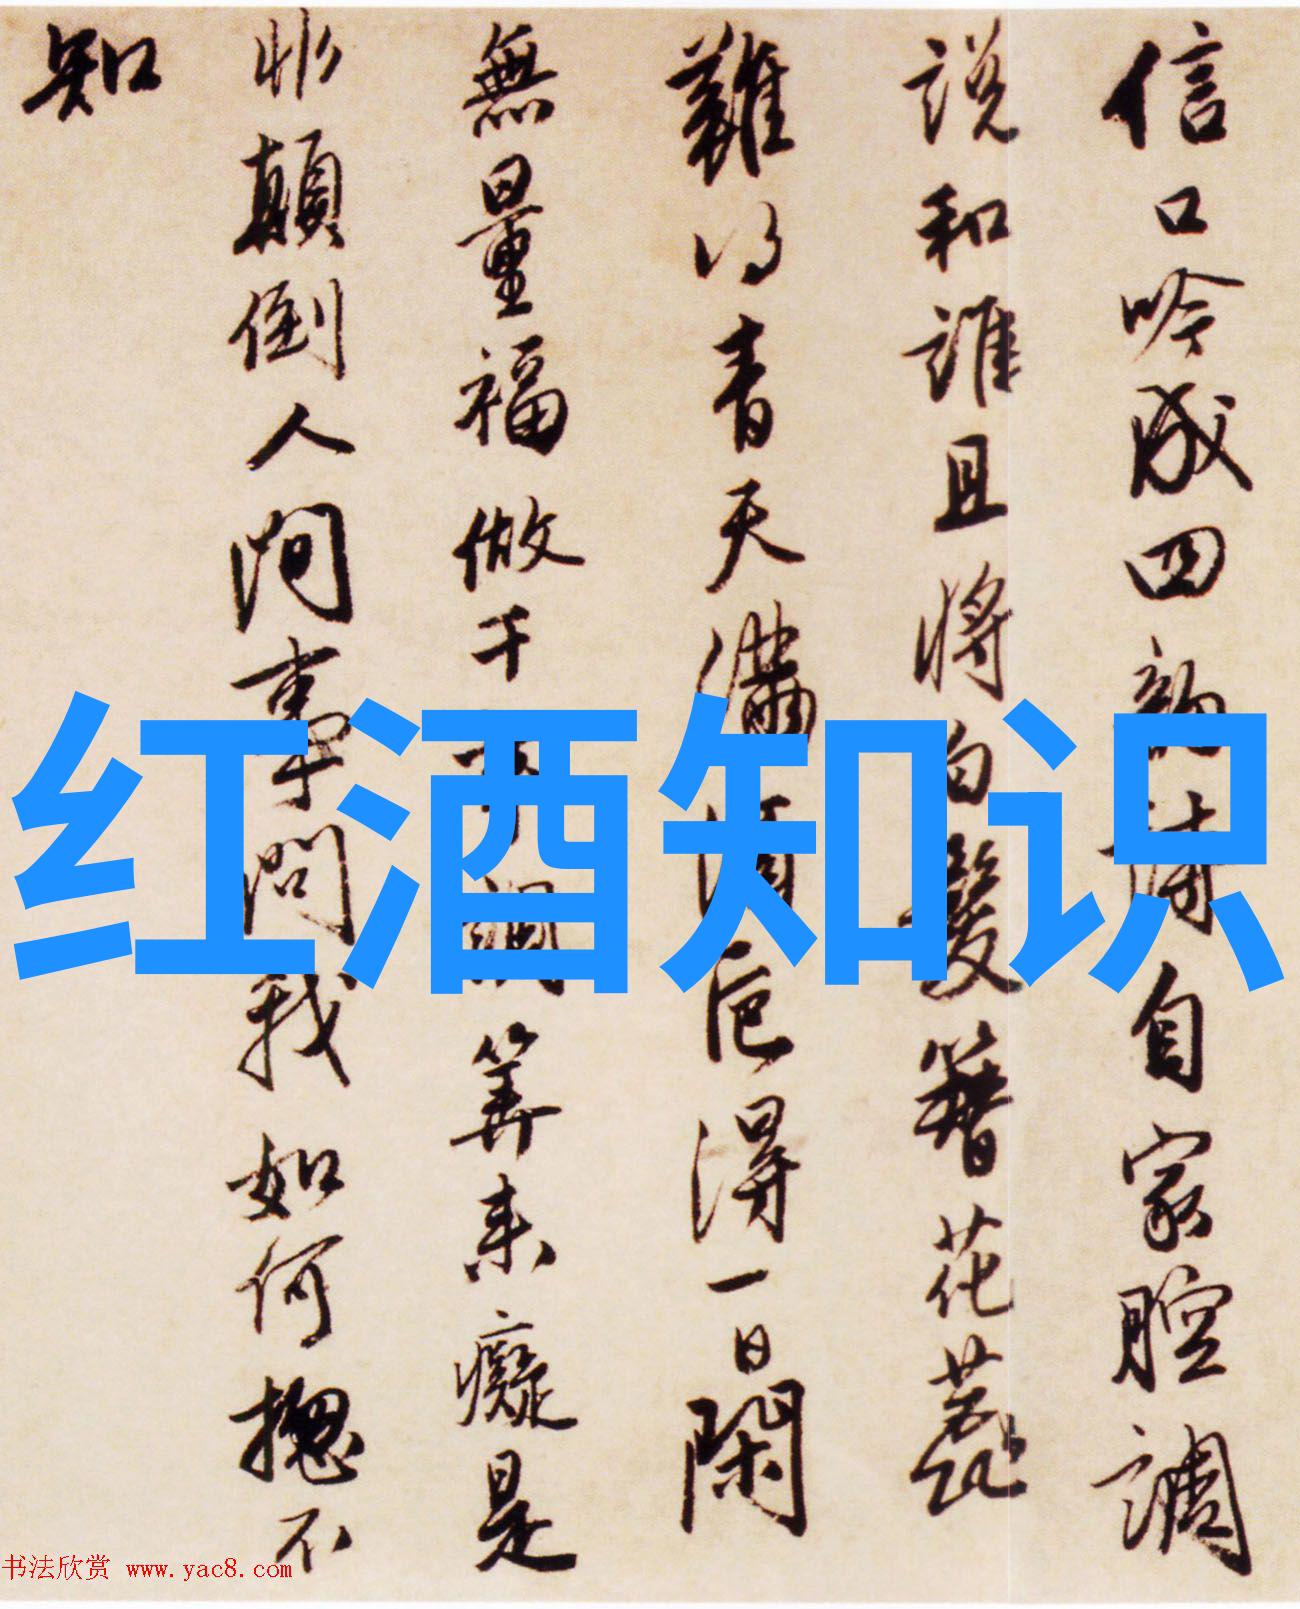 信口吟成四韵詩自家腔調
說和誰且將白髮簪花蕊
難得青天滿酒卮得一日閑
無量福做千年調算来癡是
非顛倒人間事問我如何揔不
知
红酒知识
书法欣赏 www.yac8.com